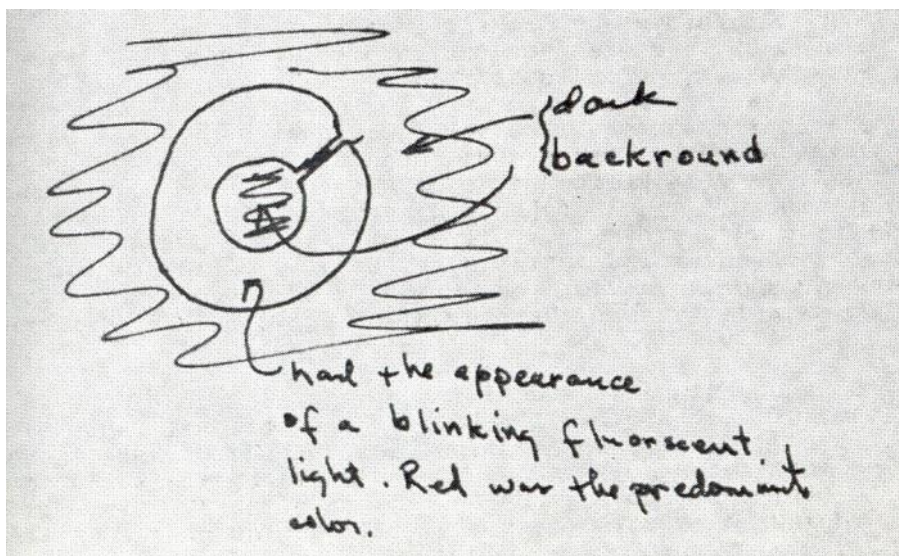 dark
backround
had the appearance
of a blinking fluorscent
light. Red was the predominant
color.